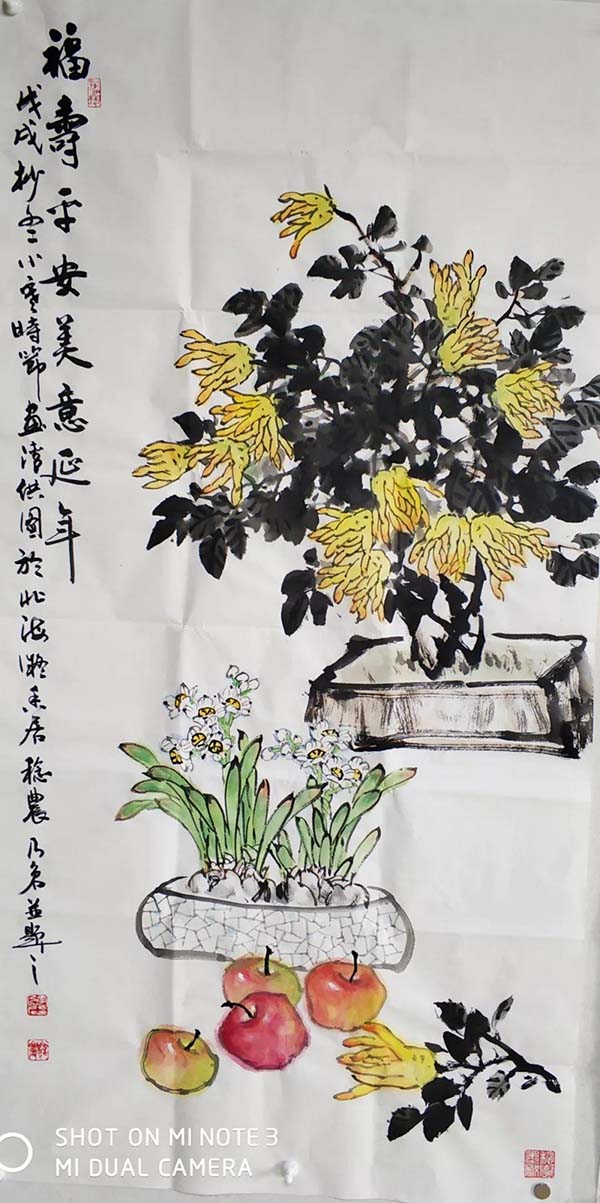 福壽平安美意延年
戊戌抄冬小寒時節畫清供圖於北海凝香居稔農乃泉並題之
SHOT ON MI NOTE 3
MI DUAL CAMERA